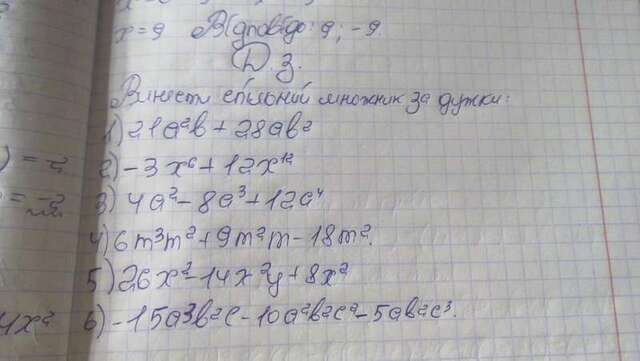 x=9 Відповідь: 9; -9.
Д.З.
Винести спільний множник за дужки:
1) 21a²b + 28ab²
) = -2
2) -3x⁶ + 12x¹²
3) 4a² - 8a³ + 12a⁴
4) 6m³m² + 9m²m - 18m².
5) 26x² - 14x²y + 8x²
4x² 6) -15a³b²c - 10a²b²c² - 5ab²c³.